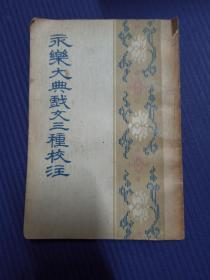 永樂大典戲文三種校注